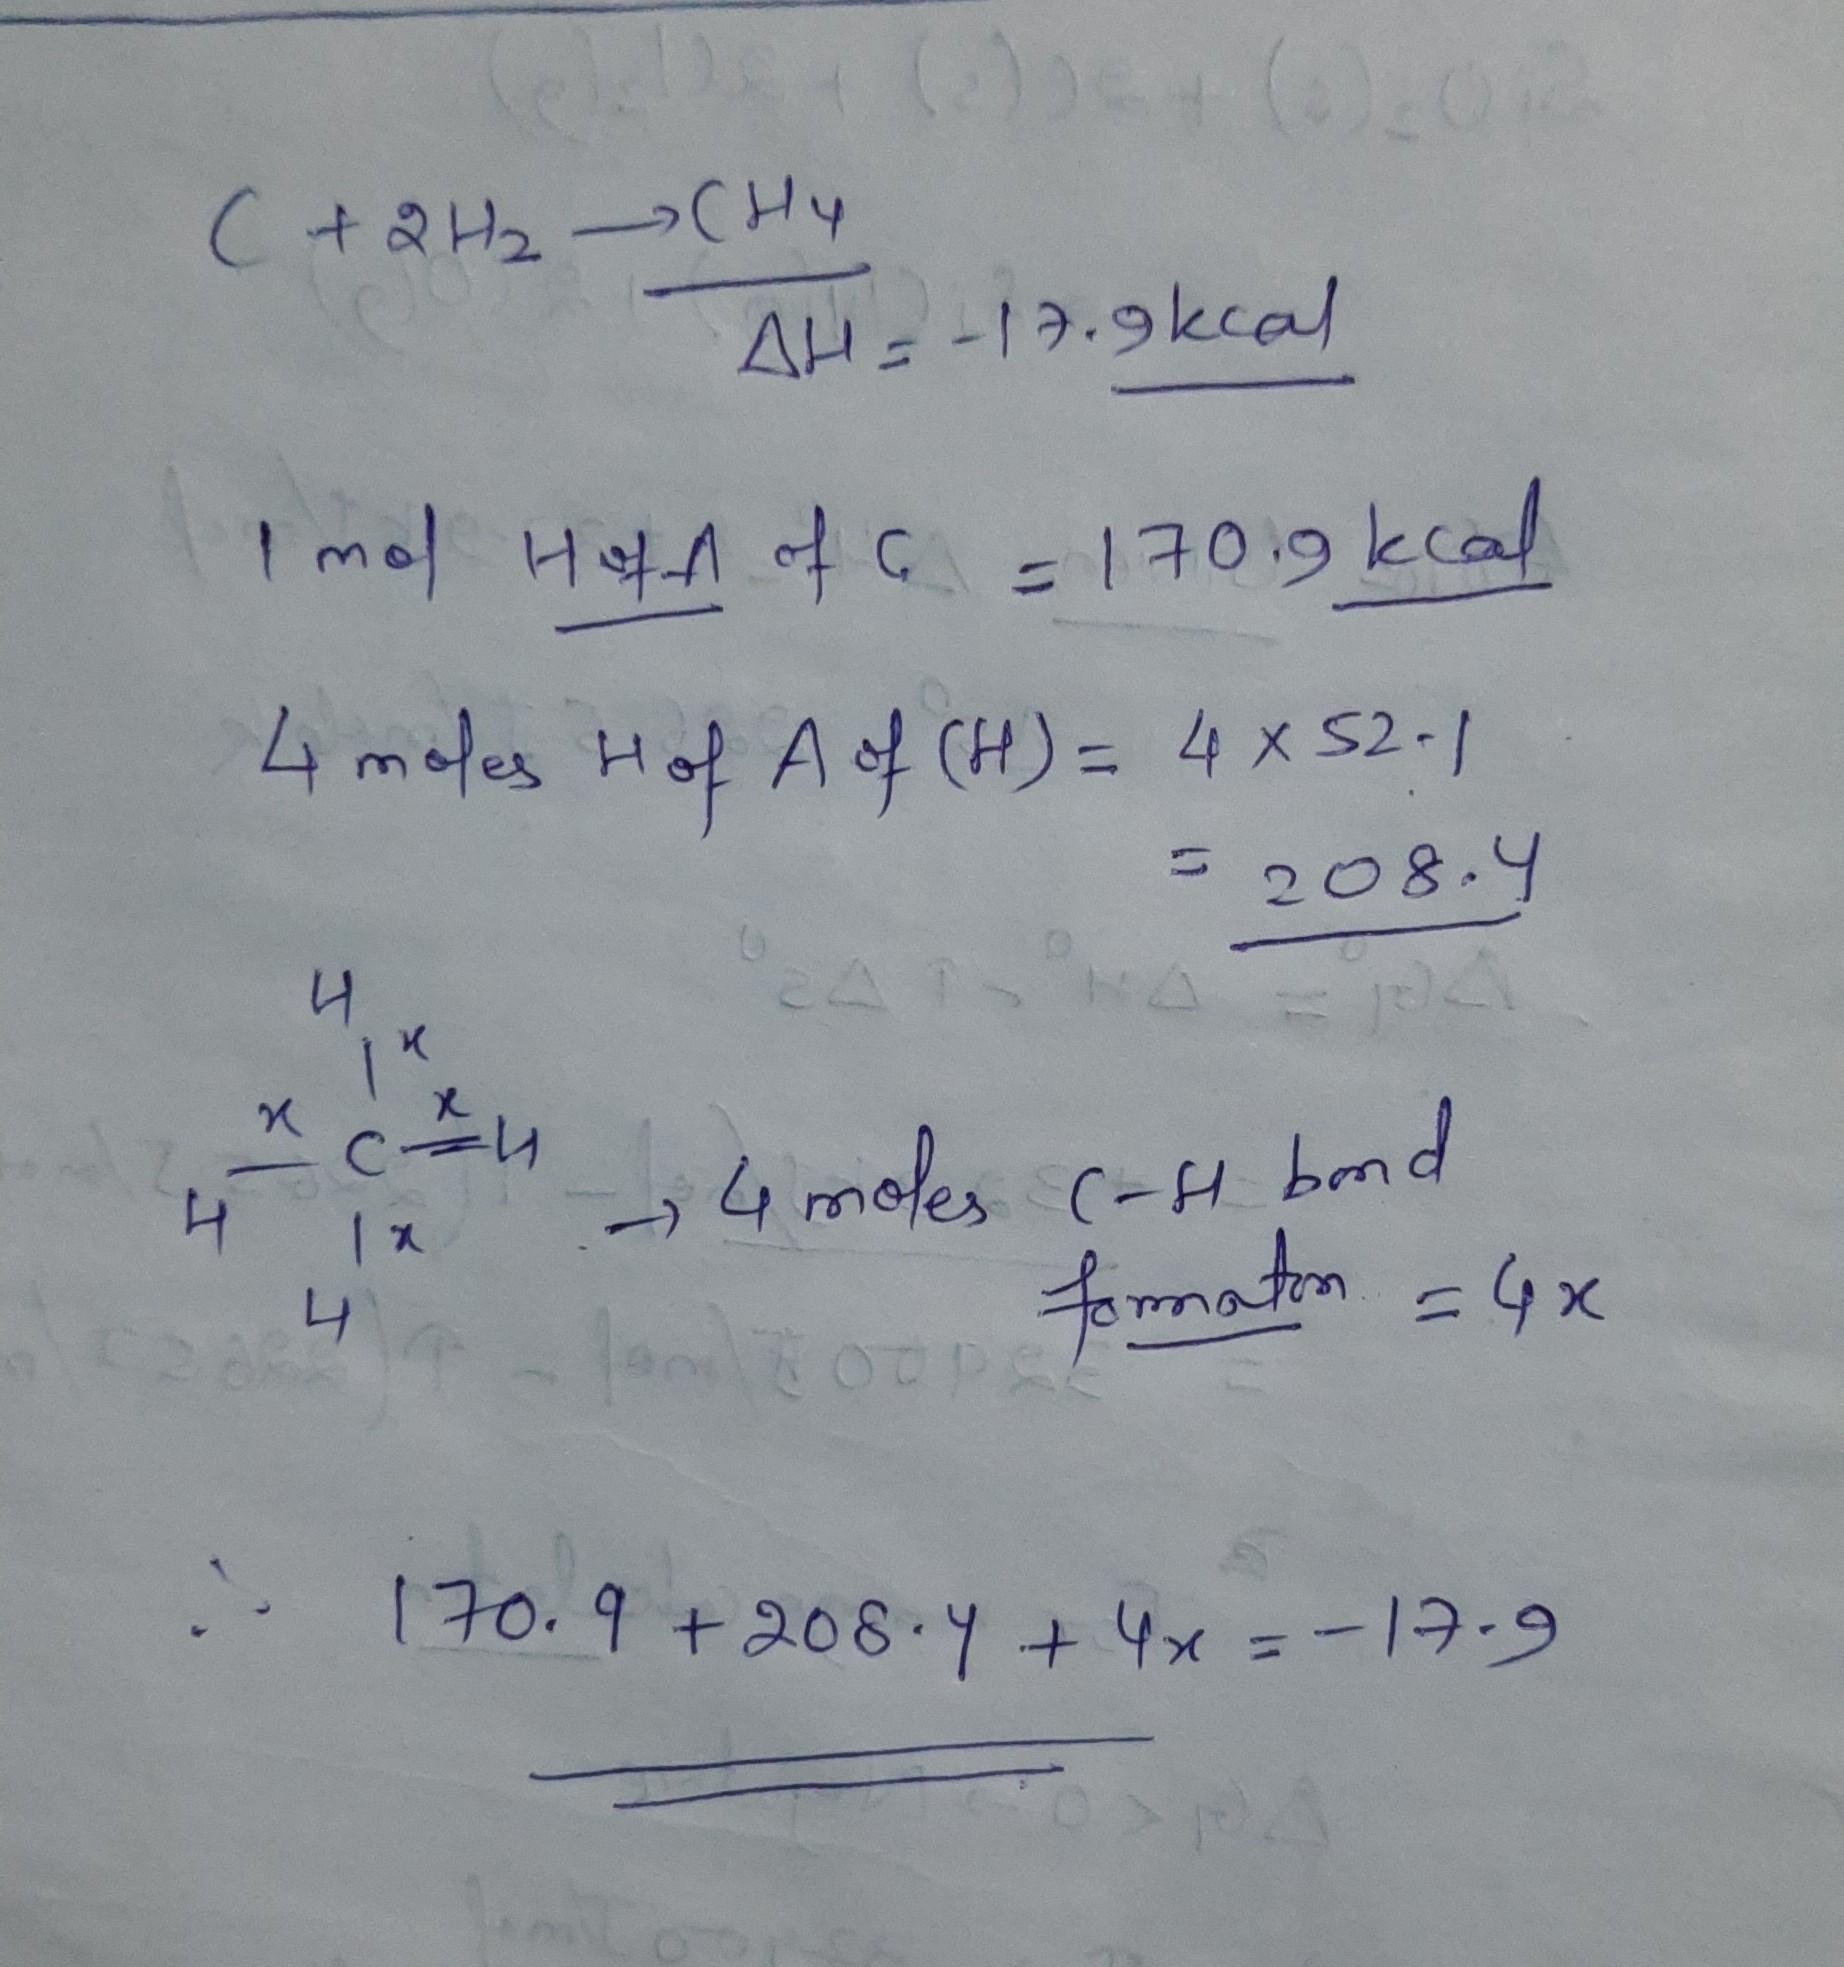 C + 2H₂ → CH₄
ΔH = -17.9 kcal
1 mol H of A of C = 170.9 kcal
4 moles H of A of (H) = 4 x 52.1
= 208.4
H
| x
x C x H
H
| x
H
→ 4 moles C-H bond
formation = 4x
∴ 170.9 + 208.4 + 4x = -17.9